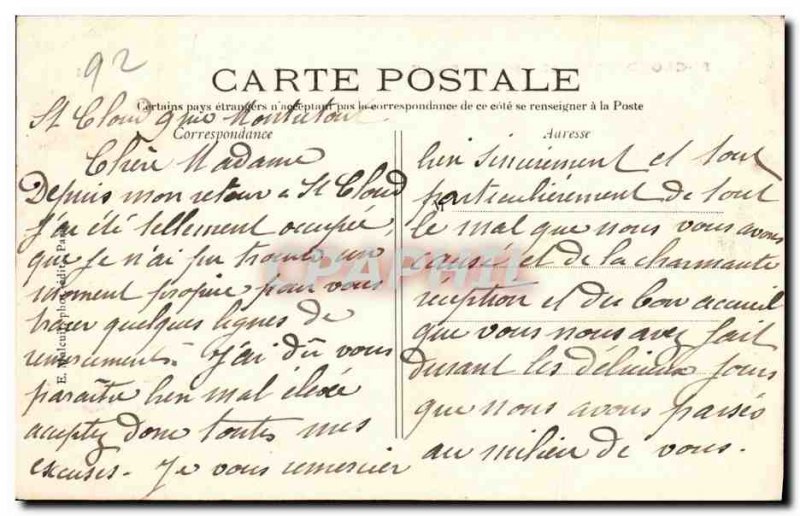 92
CARTE POSTALE
Certains pays étrangers n'acceptant pas la correspondance de ce côté se renseigner à la Poste
St Cloud 9 rue Montretout
Correspondance
Chère Madame
Depuis mon retour a St Cloud
j'ai été tellement occupée,
que je n'ai pu trouver un
moment propice pour vous
tracer quelques lignes de
remerciements. J'ai dû vous
paraître bien mal élevée
acceptez donc toutes mes
excuses. Je vous remercier
Adresse
bien sincèrement et tout
particulièrement de tout
le mal que nous vous avons
causé et de la charmante
réception et du bon accueil
que vous nous avez fait
durant les délicieux jours
que nous avons passés
au milieu de vous.
E. Malcuit, phot. édit. Paris
CPAPHIL